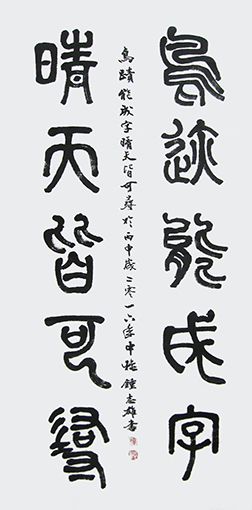 鳥迹能成字
晴天皆可尋
鳥蹟能成字晴天皆可尋於丙申歲二零一六年中秋鍾志雄書